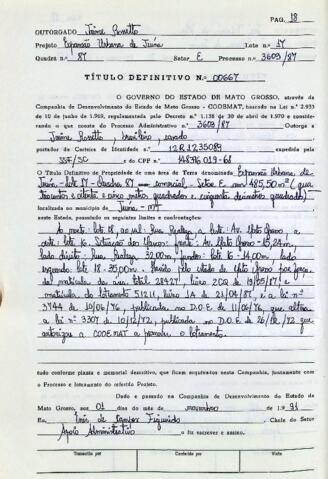 PAG. 18
OUTORGADO Jaime Rossetto
Projeto Expansão Urbana de Juína Lote n.º 17
Quadra n.º 87 Setor E Processo n.º 3609/87
TÍTULO DEFINITIVO N.º 00667
O GOVERNO DO ESTADO DE MATO GROSSO, através da
Companhia de Desenvolvimento do Estado de Mato Grosso - CODEMAT, baseado na Lei n.º 2.933
de 10 de junho de 1969, regulamentada pelo Decreto n.º 1.138 de 30 de abril de 1970 e considerando
o que consta do Processo Administrativo n.º 3609/87 Outorga a
Jaime Rossetto, brasileiro, casado
portador da Carteira de Identidade n.º 12R1235089 expedida pela
SSP/SC e do CPF n.º
O Título Definitivo de Propriedade de uma área de Terra denominada Expansão Urbana de
Juína - Lote 17 - Quadra 87 - comercial, Setor E com 485,50 m² (quatrocentos
e oitenta e cinco metros quadrados e cinquenta decímetros quadrados)
localizada no município de Juína - MT
neste Estado, possuindo os seguintes limites e confrontações:
Ao norte: lote 18, ao sul: Rua a leste: Av. Mato Grosso, a
oeste: lote 16. Situação dos Marcos: frente: Av. Mato Grosso - 15,24m,
lado direito: Rua 32,00m fundos: lote 16 - 14,00m lado
esquerdo: lote 18 - 35,00m - Havido pelo estado de Mato Grosso por força
da matrícula da área total 28427, livro 2CQ de 19/05/87 e
matrícula do loteamento 51211, livro 1A de 21/04/87, e a lei n.º
3744 de 10/06/76, publicada no D.O.E. de 11/06/76, que altera
a lei n.º 3307 de 10/12/72, publicada no D.O.E. de 26/12/72 que
autoriza a CODEMAT a promover o loteamento.
tudo conforme planta e memorial descritivo, que ficam arquivados nesta Companhia, juntamente com
o Processo e loteamento do referido Projeto.
Dado e passado na Companhia de Desenvolvimento do Estado de
Mato Grosso, aos 01 dias do mês de novembro de 1.991
Eu, de Campos Figueiredo Chefe do Setor
Apoio Administrativo a fiz escrever e assino.
Transcrito por Conferido por Visto